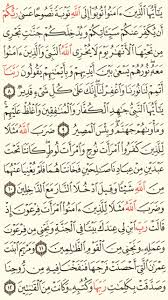 يَـٰٓأَيُّهَا ٱلَّذِينَ ءَامَنُوا۟ تُوبُوٓا۟ إِلَى ٱللَّهِ تَوْبَةً نَّصُوحًا عَسَىٰ رَبُّكُمْ
أَن يُكَفِّرَ عَنكُمْ سَيِّـَٔاتِكُمْ وَيُدْخِلَكُمْ جَنَّـٰتٍ تَجْرِى
مِن تَحْتِهَا ٱلْأَنْهَـٰرُ يَوْمَ لَا يُخْزِى ٱللَّهُ ٱلنَّبِىَّ وَٱلَّذِينَ ءَامَنُوا۟
مَعَهُۥ نُورُهُمْ يَسْعَىٰ بَيْنَ أَيْدِيهِمْ وَبِأَيْمَـٰنِهِمْ يَقُولُونَ رَبَّنَآ
أَتْمِمْ لَنَا نُورَنَا وَٱغْفِرْ لَنَآ إِنَّكَ عَلَىٰ كُلِّ شَىْءٍ قَدِيرٌ ٨
يَـٰٓأَيُّهَا ٱلنَّبِىُّ جَـٰهِدِ ٱلْكُفَّارَ وَٱلْمُنَـٰفِقِينَ وَٱغْلُظْ عَلَيْهِمْ
وَمَأْوَىٰهُمْ جَهَنَّمُ وَبِئْسَ ٱلْمَصِيرُ ٩ ضَرَبَ ٱللَّهُ مَثَلًا
لِّلَّذِينَ كَفَرُوا۟ ٱمْرَأَتَ نُوحٍ وَٱمْرَأَتَ لُوطٍ كَانَتَا تَحْتَ
عَبْدَيْنِ مِنْ عِبَادِنَا صَـٰلِحَيْنِ فَخَانَتَاهُمَا فَلَمْ يُغْنِيَا عَنْهُمَا
مِنَ ٱللَّهِ شَيْـًٔا وَقِيلَ ٱدْخُلَا ٱلنَّارَ مَعَ ٱلدَّٰخِلِينَ ١٠
وَضَرَبَ ٱللَّهُ مَثَلًا لِّلَّذِينَ ءَامَنُوا۟ ٱمْرَأَتَ فِرْعَوْنَ إِذْ
قَالَتْ رَبِّ ٱبْنِ لِى عِندَكَ بَيْتًا فِى ٱلْجَنَّةِ وَنَجِّنِى مِن فِرْعَوْنَ
وَعَمَلِهِۦ وَنَجِّنِى مِنَ ٱلْقَوْمِ ٱلظَّـٰلِمِينَ ١١ وَمَرْيَمَ ٱبْنَتَ
عِمْرَٰنَ ٱلَّتِىٓ أَحْصَنَتْ فَرْجَهَا فَنَفَخْنَا فِيهِ مِن رُّوحِنَا
وَصَدَّقَتْ بِكَلِمَـٰتِ رَبِّهَا وَكُتُبِهِۦ وَكَانَتْ مِنَ ٱلْقَـٰنِتِينَ ١٢